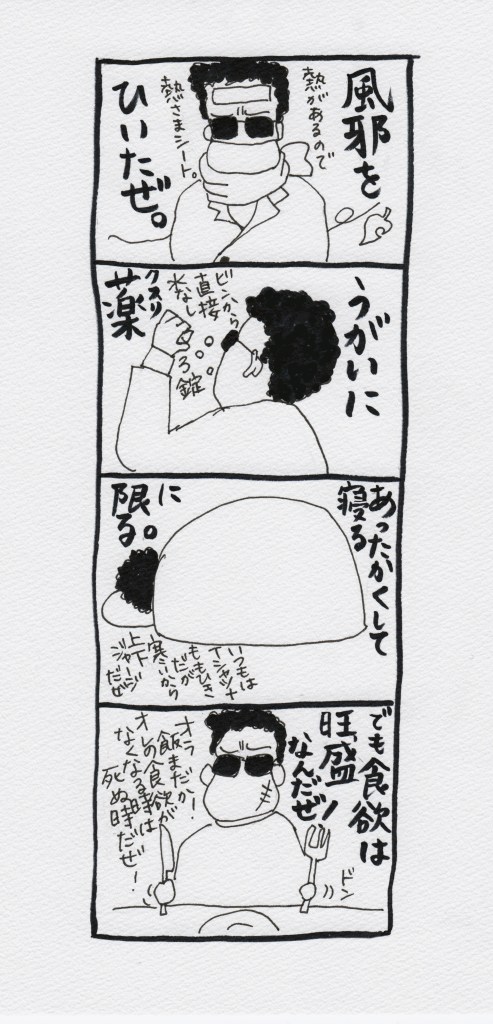 風邪を
ひいたぜ。
熱があるので
熱さまシート。
うがいに
クスリ
薬
ビンから
直接
水なし
3錠
あったかくして
寝る
に
限る。
いつもは
Tシャツ+
ももひき
だが
寒いから
上下
ジャージ
だぜ
でも食欲は
旺盛
なんだぜ!
オラー!
飯まだか!
オレの食欲が
なくなる時は
死ぬ時だぜー!
ドン